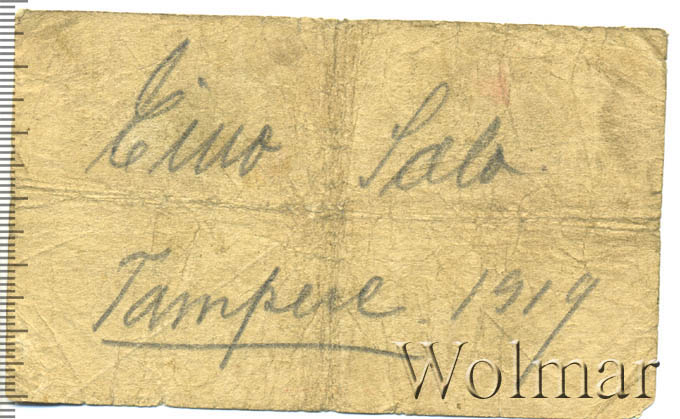 Eino Salo.
Tampere. 1919
Wolmar